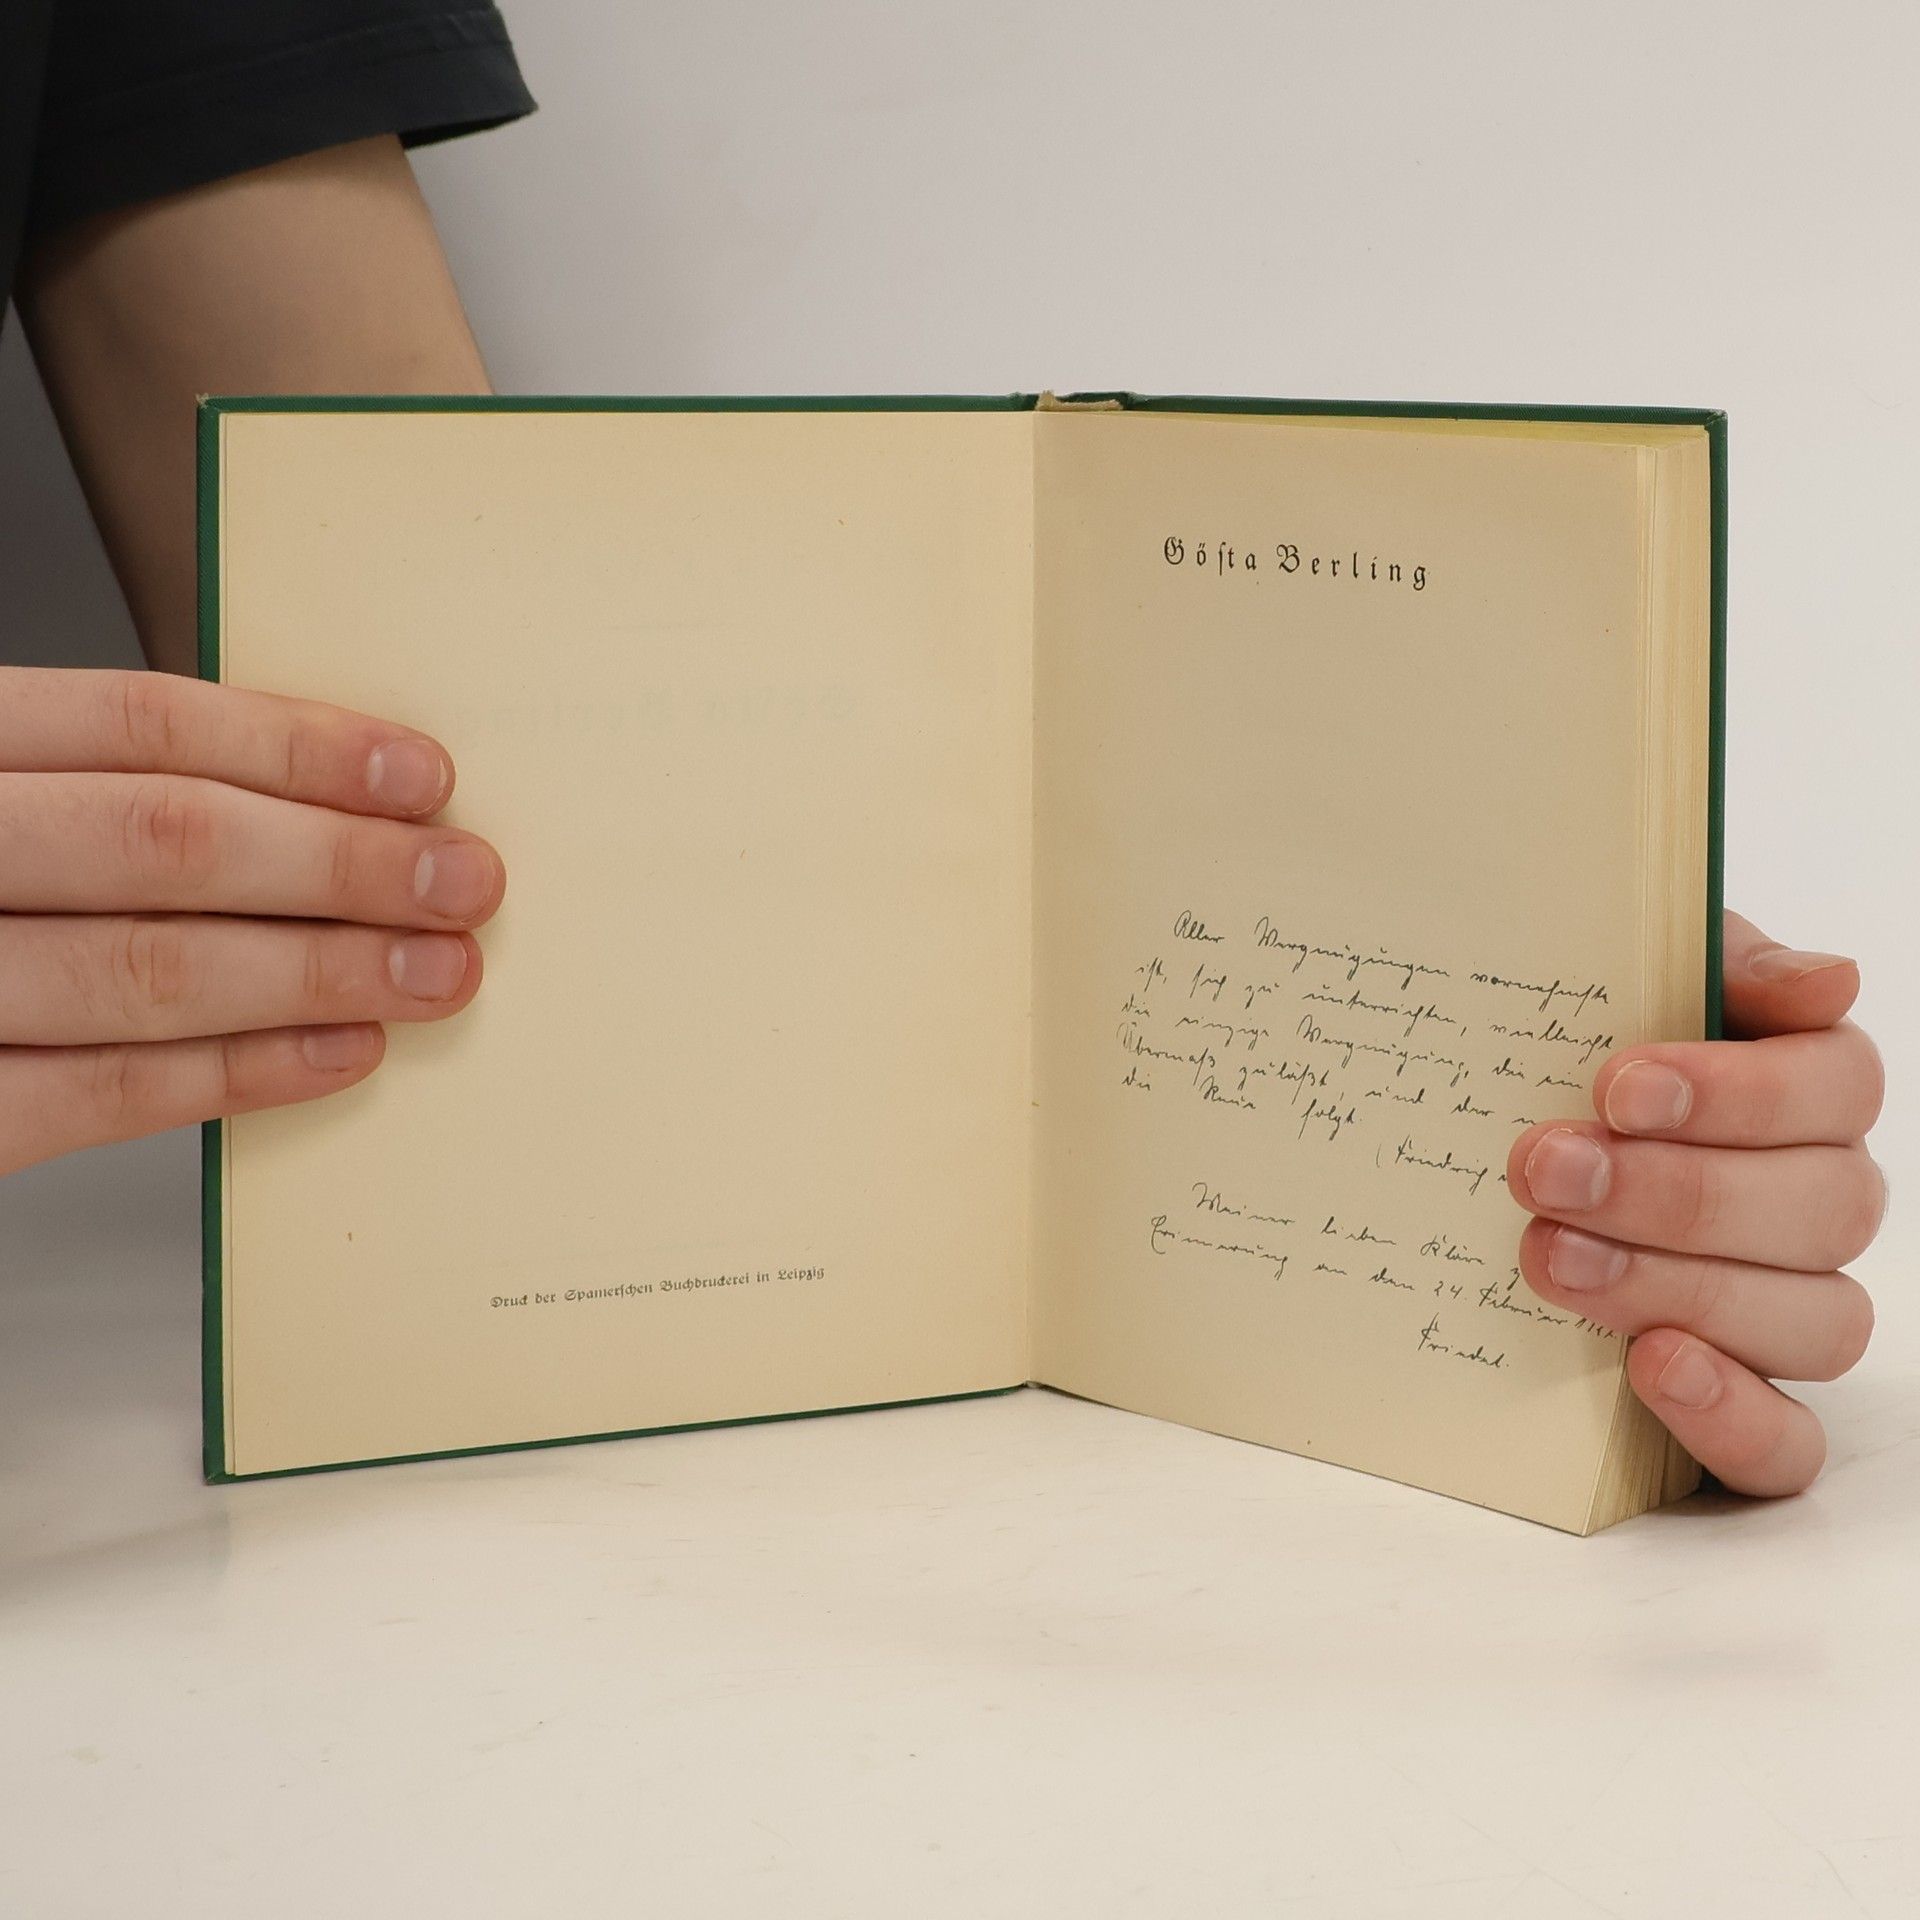 Druck der Spamerschen Buchdruckerei in Leipzig
Gösta Berling
Aller Vergnügungen vornehmste
ist, sich zu unterrichten, vielleicht
die einzige Vergnügung, die ein
Übermaß zuläßt, und der
die Reue folgt.
(Friedrich
Meiner lieben Kläre
Erinnerung an den 24. Februar
Friedel.